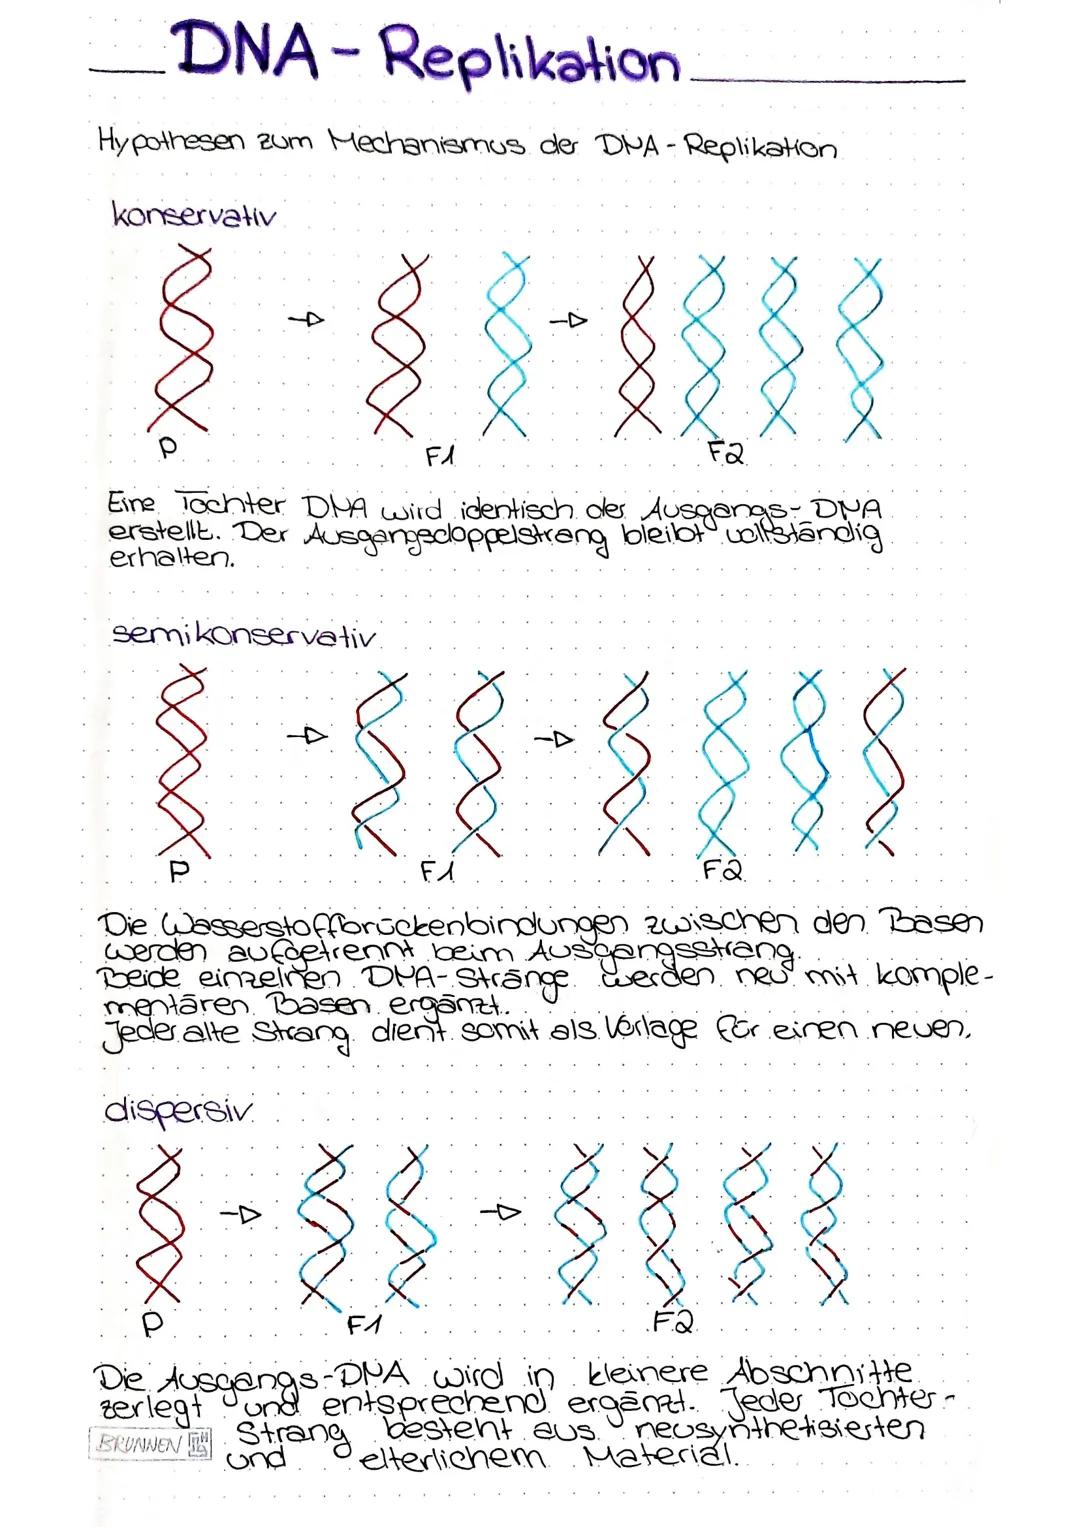 DNA - Replikation
Hypothesen zum Mechanismus der DNA - Replikation
konservativ
P
F1
F2
Eine Tochter DNA wird identisch der Ausgangs- DNA
erstellt. Der Ausgangsdoppelstrang bleibt vollständig
erhalten.
semikonservativ
P
F1
F2
Die Wasserstoffbrückenbindungen zwischen den Basen
werden aufgetrennt beim Ausgangsstrang.
Beide einzelnen DNA-Stränge werden neu mit komple-
mentären Basen ergänzt.
Jeder alte Strang dient somit als Vorlage für einen neuen.
dispersiv
P
F1
F2
Die Ausgangs-DNA wird in kleinere Abschnitte
zerlegt und entsprechend ergänzt. Jeder Tochter-
Strang besteht aus neusynthetisierten
und elterlichem Material.
BRUNNEN